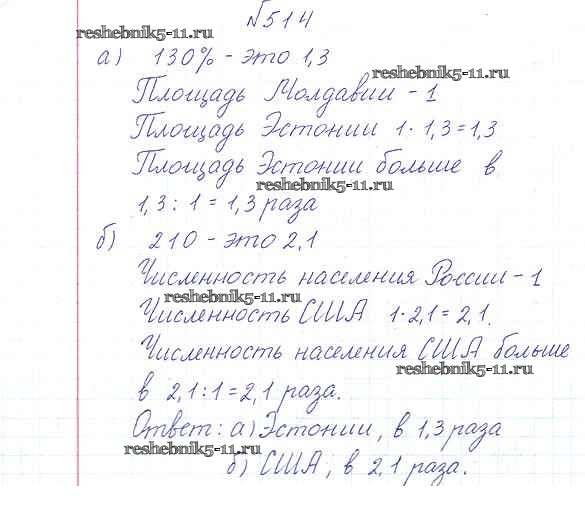 №514
reshebnik5-11.ru
а) 130% - это 1,3
reshebnik5-11.ru
Площадь Молдавии - 1
Площадь Эстонии 1 · 1,3 = 1,3
Площадь Эстонии больше в
reshebnik5-11.ru
1,3 : 1 = 1,3 раза
б) 210 - это 2,1
Численность населения России - 1
reshebnik5-11.ru
Численность США 1 · 2,1 = 2,1.
Численность населения США больше
reshebnik5-11.ru
в 2,1 : 1 = 2,1 раза.
Ответ: а) Эстонии, в 1,3 раза
reshebnik5-11.ru
б) США, в 2,1 раза.